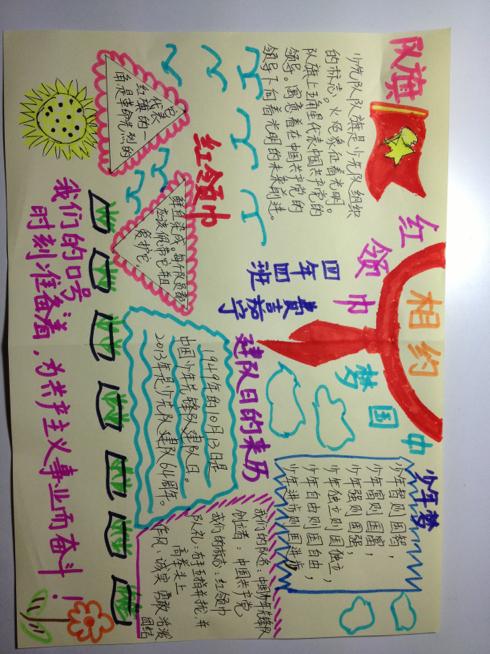 红领巾
相约
中国梦
四年四班
队旗
少先队队旗是少先队组织
的标志。火炬象征着光明。
队旗上五角星代表中国共产党的
领导。寓意着在中国共产党的
领导下向着光明的未来前进。
少年梦
少年智则国智
少年富则国富；
少年强则国强，
少年独立则国独立，
少年自由则国自由，
少年进步则国进步。
红领巾
它代表
红旗的一
角是革命先烈的
鲜血染成。每个队员都
应该佩带它并且
爱护它
建队日的来历
1949年的10月13日是
中国少年先锋队建队日。
2013年是少先队建队64周年。
我们的队名：中国少年先锋队
创立者：中国共产党
我们的标志：红领巾
队礼：右手五指并拢，并
高举头上
作风：诚实 勇敢 活泼
团结
我们的口号：
时刻准备着，为共产主义事业而奋斗！